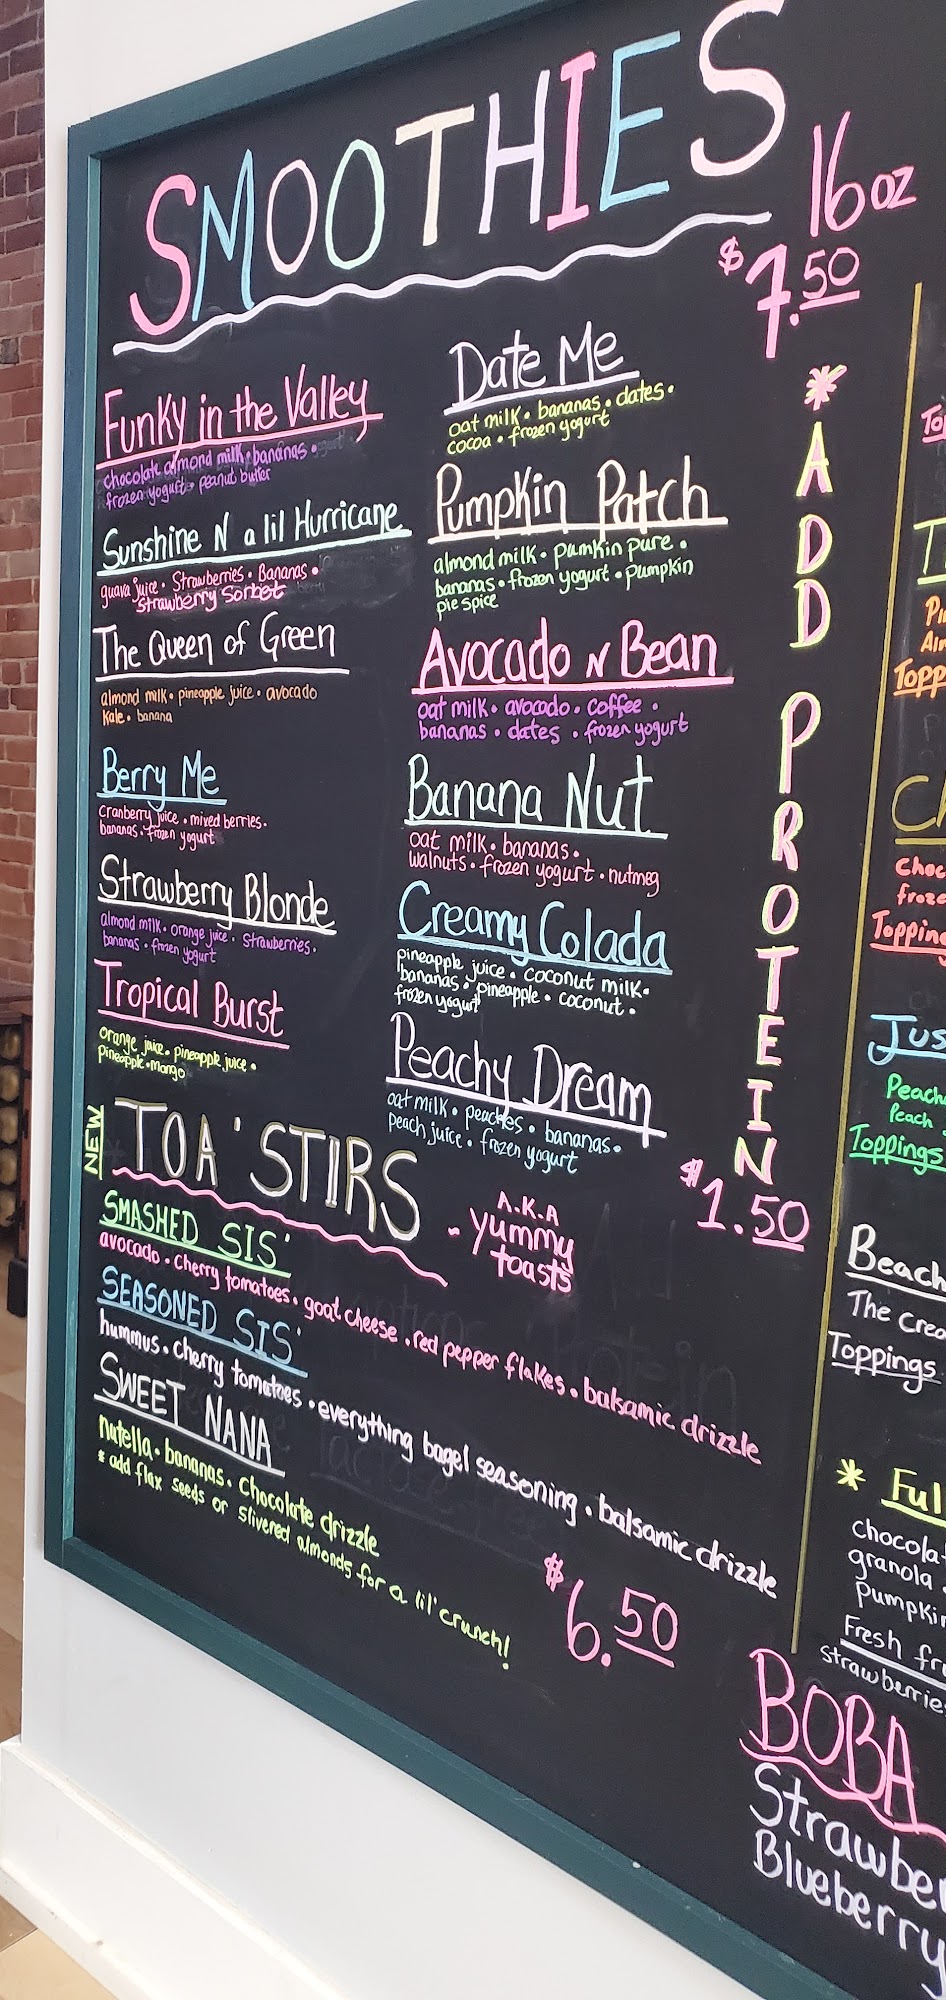 SMOOTHIES
16oz
$7.50
Funky in the Valley
chocolate almond milk • bananas •
frozen yogurt • peanut butter
Sunshine N a lil Hurricane
guava juice • Strawberries • Bananas •
strawberry sorbet
The Queen of Green
almond milk • pineapple juice • avocado
kale • banana
Berry Me
cranberry juice • mixed berries •
bananas • frozen yogurt
Strawberry Blonde
almond milk • orange juice • strawberries •
bananas • frozen yogurt
Tropical Burst
orange juice • pineapple juice •
pineapple • mango
Date Me
oat milk • bananas • dates •
cocoa • frozen yogurt
Pumpkin Patch
almond milk • pumkin pure •
bananas • frozen yogurt • pumpkin
pie spice
Avocado N Bean
oat milk • avocado • coffee •
bananas • dates • frozen yogurt
Banana Nut
oat milk • bananas •
walnuts • frozen yogurt • nutmeg
Creamy Colada
pineapple juice • coconut milk •
bananas • pineapple • coconut •
frozen yogurt
Peachy Dream
oat milk • peaches • bananas •
peach juice • frozen yogurt
* ADD PROTEIN
$1.50
NEW
TOA'STIRS
- A.K.A
yummy
toasts
SMASHED SIS'
avocado • cherry tomatoes • goat cheese • red pepper flakes • balsamic drizzle
SEASONED SIS'
hummus • cherry tomatoes • everything bagel seasoning • balsamic drizzle
SWEET NANA
nutella • bananas • chocolate drizzle
* add flax seeds or slivered almonds for a lil' crunch!
$6.50
Topp
Toppings
Peach
Toppings
Beach
The Crea
Toppings
* Ful
chocolat
granola
Pumpkin
Fresh fr
strawberries
BOBA
Strawber
Blueberry